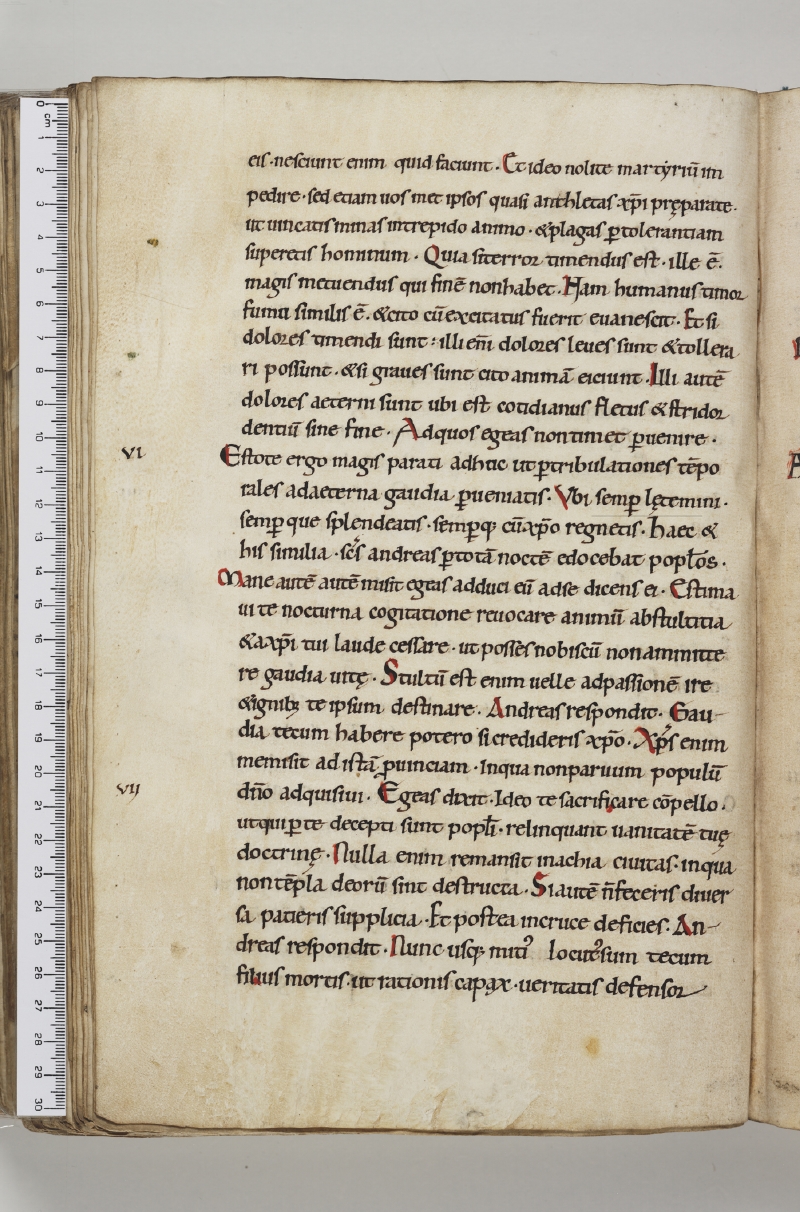 eis · nesciunt enim quid faciunt · Et ideo nolite martyriū im
pedire · sed etiam uos met ipsos quasi anthletas xp̄i pręparate ·
ut uincatis minas intrepido animo · & plagas p̱ tolerantiam
superetis hominum · Quia si terror timendus est · ille ē.
magis metuendus qui finē non habet · Nam humanus timor
fumu similis ē. & cito cū excitatus fuerit euanescit · Et si
dolores timendi sunt : illi eni̅ dolores leues sunt & tollera
ri possunt · & si graues sunt cito animā eiciunt · Illi autē
dolores aeterni sunt ubi est cotidianus fletus & stridor
dentiū sine fine · Ad quos egeas non timet p̱uenire ·
VI
Estote ergo magis parati adhuc ut p̱ tribulationes tēpo
rales ad aeterna gaudia p̱ueniatis · Vbi semp̱ lętemini ·
semp̱ que splendeatis · semp̱ q; cū xp̄o regnetis · Haec &
his similia · sc̄s andreas p̱ totā noctē edocebat popl̄os ·
Mane autē autē misit egeas adduci eū ad se dicens ei · Estima
ui te nocturna cogitatione reuocare animū ab stultitia
& a xp̄i tui laude cessare · ut posses nobiscū non amitte
re gaudia uitę · Stultū est enim uelle ad passionē ire
& ignib; te ipsum destinare · Andreas respondit · Gau
dia tecum habere potero si credideris xp̄o · Xp̄s enim
me misit ad istā p̱uinciam · in qua non paruum populū
VII
dn̄o adquisiui · Egeas dixit · Ideo te sacrificare cōpello ·
ut qui p̱ te decepti sunt popl̄i · relinquant uanitatē tuę
doctrinę · Nulla enim remansit in achia ciuitas · in qua
non tēpla deorū sint destructa · Si autē n̄ feceris diuer
sa patieris supplicia · Et postea in cruce deficies · An
dreas respondit · Nunc usq; mitiꝰ locutꝰ sum tecum
filius mortis · ut rationis capax · ueritatis defensor